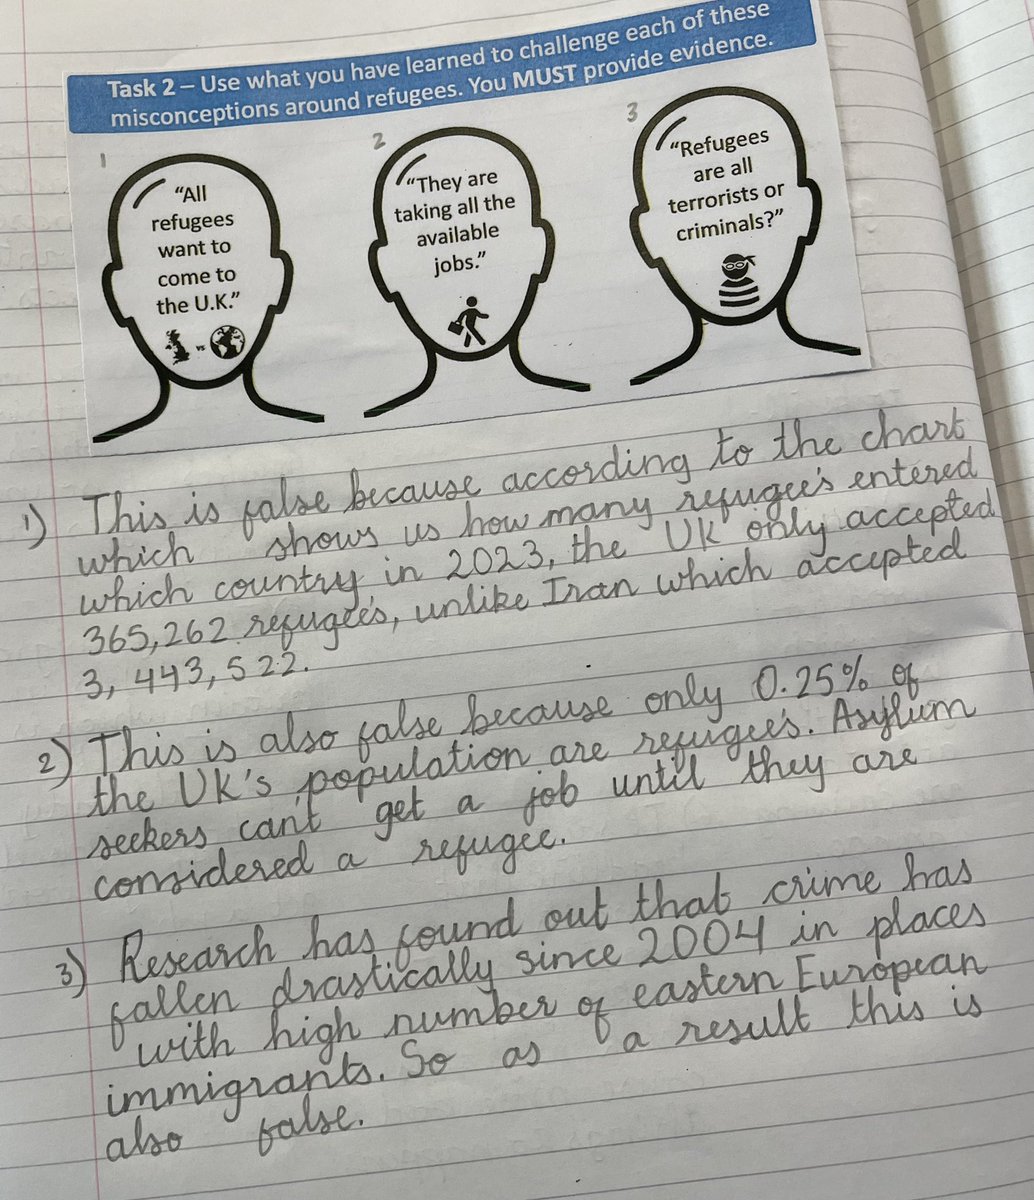 Task 2 – Use what you have learned to challenge each of these
misconceptions around refugees. You MUST provide evidence.
1
"All
refugees
want to
come to
the U.K."
vs
2
"They are
taking all the
available
jobs."
3
"Refugees
are all
terrorists or
criminals?"
1) This is false because according to the chart
which shows us how many refugee's entered
which country in 2023, the UK only accepted
365,262 refugee's, unlike Iran which accepted
3, 443, 522.
2) This is also false because only 0.25% of
the UK's population are refugee's. Asylum
seekers can't get a job until they are
considered a refugee.
3) Research has found out that crime has
fallen drastically since 2004 in places
with high number of eastern European
immigrants. So as a result this is
also false.